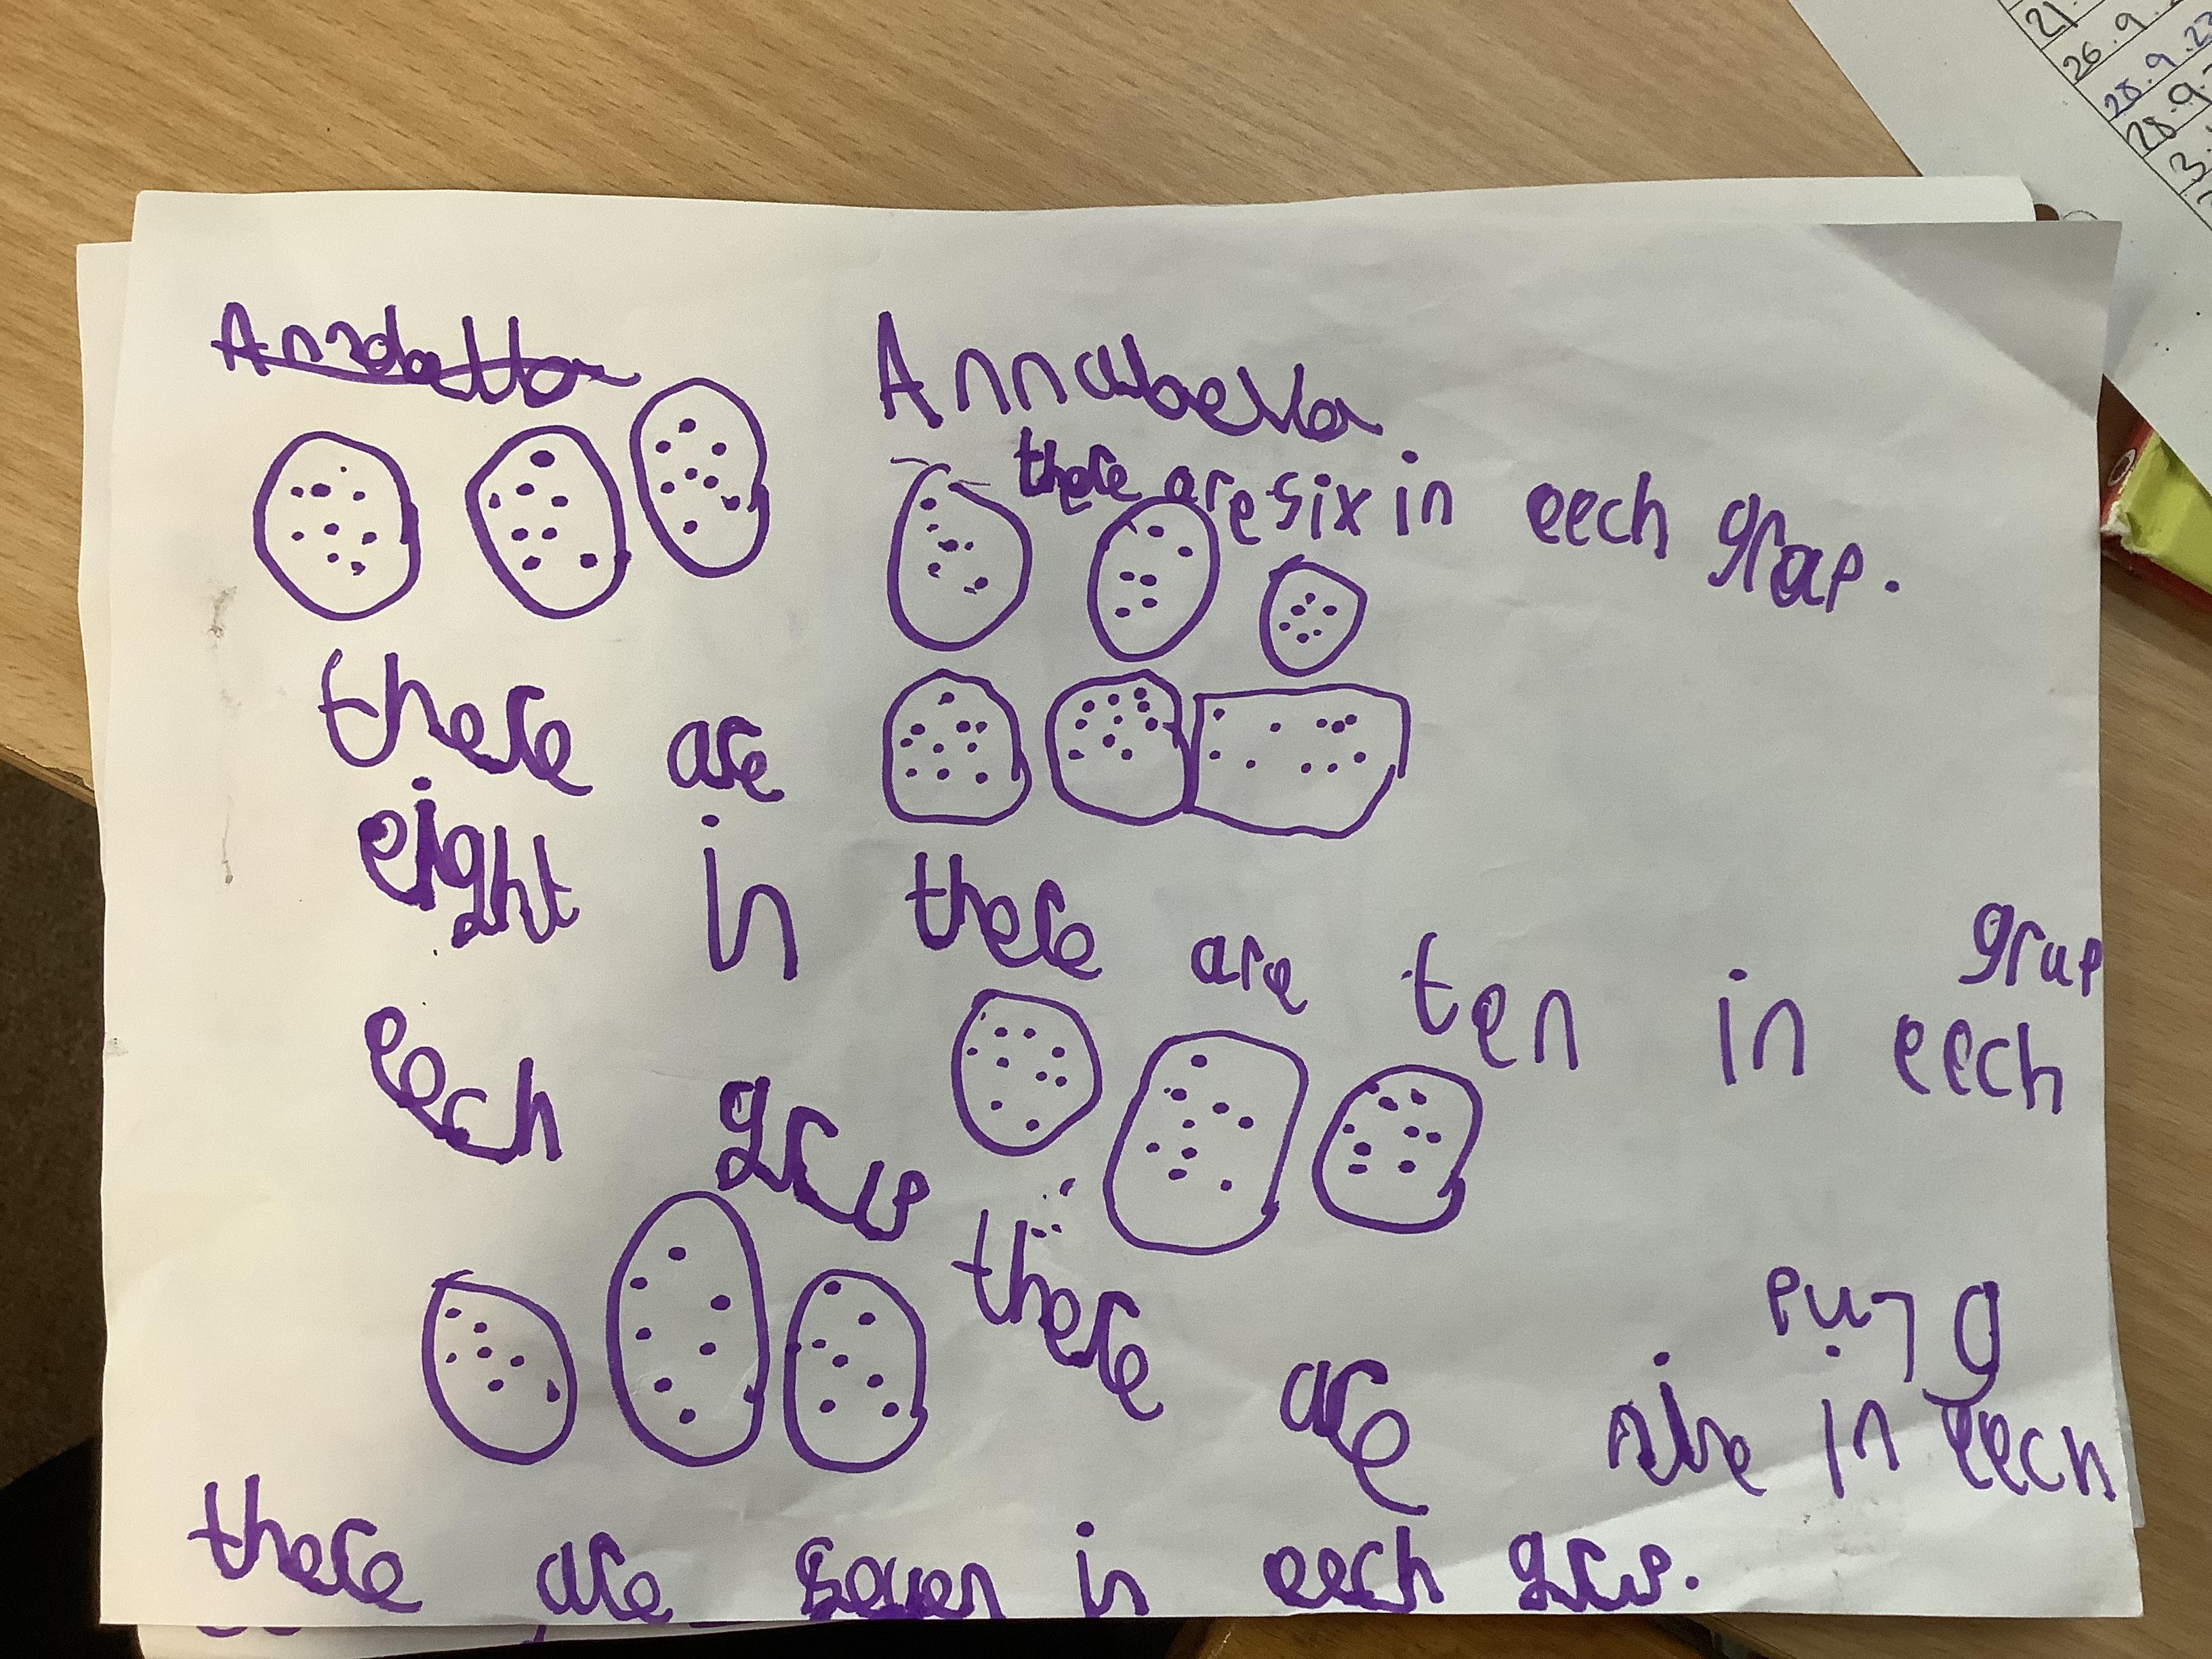 Annabella
there are six in eech grap.
there are
eight in
eech grup
there are ten in eech
grup
there are nine in eech
grup
there are seven in eech grup.
21.
26.9.
28.9.23
28.9.
3.